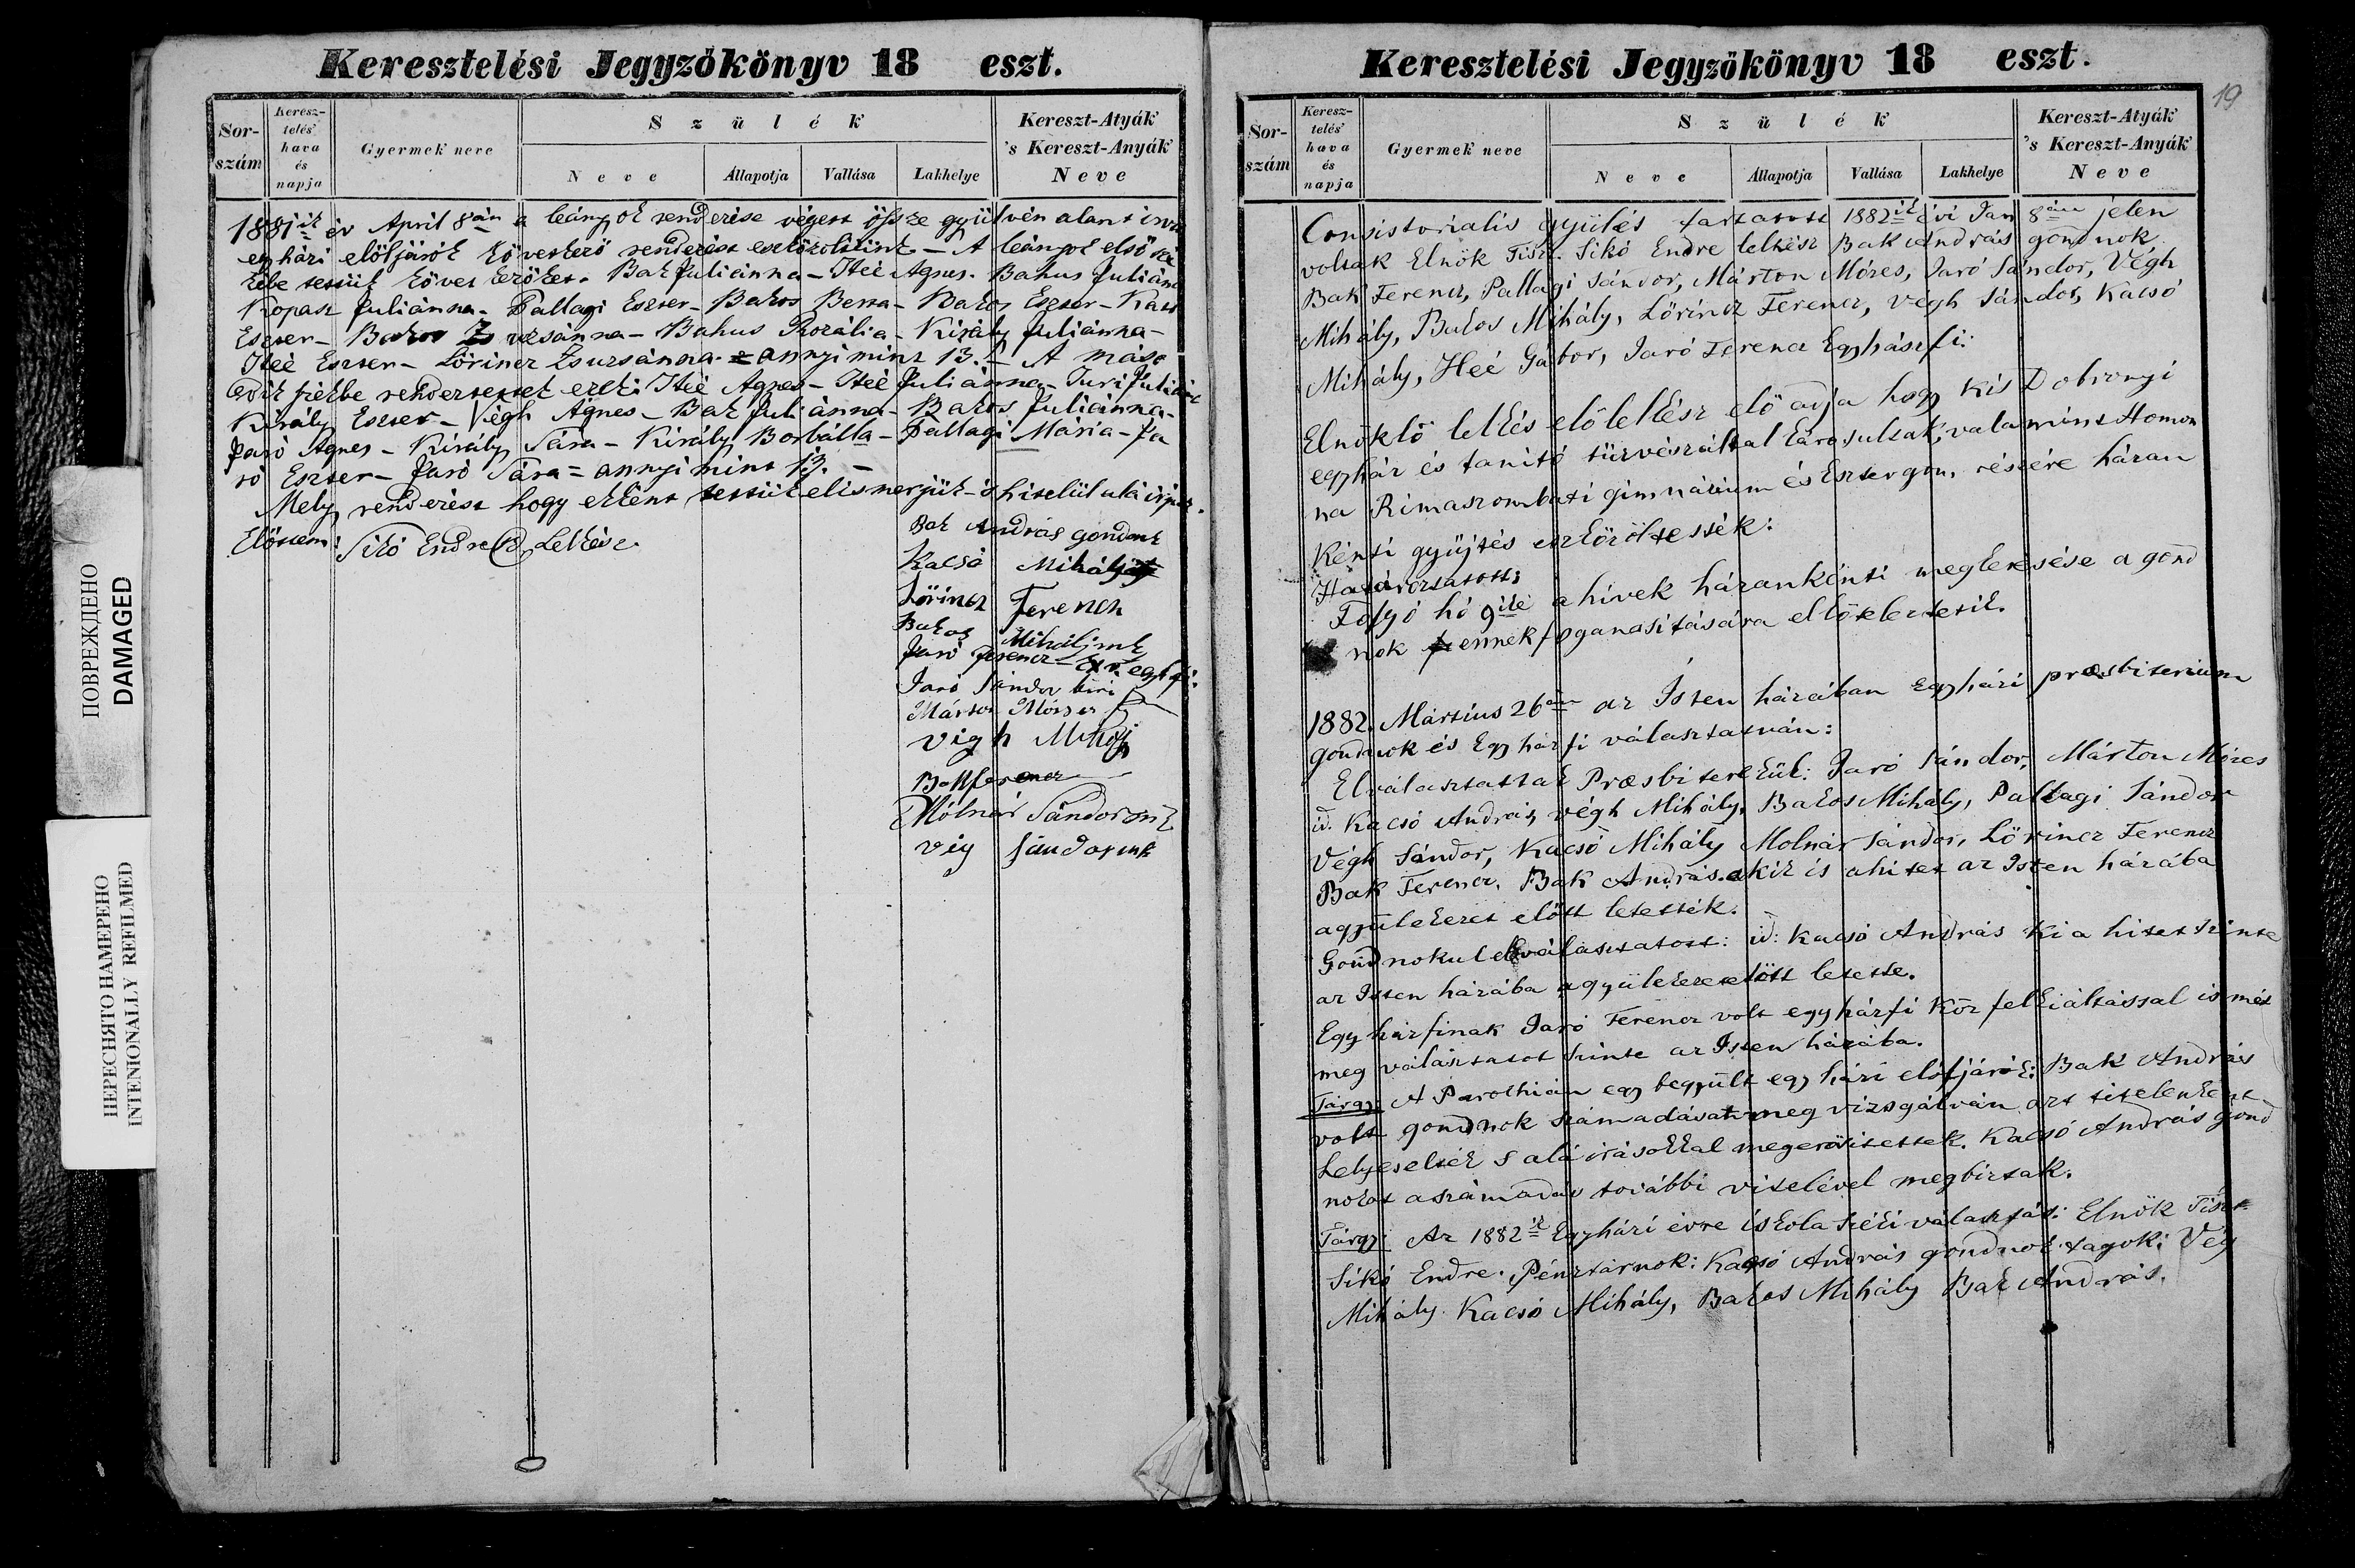 ПОВРЕЖДЕНО
DAMAGED
НЕРЕСНЯТО НАМЕРЕНО
INTENIONALLY REFILMED
Keresztelési Jegyzőkönyv 18 eszt.
Sor-szám
Keresz-telés' hava és napja
Gyermek neve
Szülék
Neve
Állapotja
Vallása
Lakhelye
Kereszt-Atyák
's Kereszt-Anyák
Neve
1881ik év April 8án a leányok renderése végett össze gyülvén alant irt
egyházi előljárók következő renderést eszközoltünk. – A leányok első szé
kébe tettük következőket. Bak Juliánna – Heé Agnes. Bakus Juliána
Kopasz Juliánna – Pallagi Eszter – Bakos Berta – Bakos Eszter –
Eszter – Bakos Zsuzsánna – Bakus Rozália – Király Juliánna –
Heé Eszter – Lőrincz Zsuzsánna = annyi mint 13. – A máso
dik székbe rendertettek ezek: Heé Agnes – Heé Juliánna – Turi Juliána
Király Eszter – Végh Ágnes – Bak Juliánna – Bakos Juliánna –
Jaró Agnes – Király Sára – Király Borbálla – Pallagi Mária – Ja
ró Eszter – Jaró Sára = annyi mint 13. –
Mely renderést hogy ekként tettük elismerjük – s hitelül alá irjuk.
Előttem: Sikó Endre Lelkész
Bak András gondnok
Kacsó Mihály
Lőrincz Ferencz
Bakos Mihálj mk
Jaró Ferencz – egyhfi.
Jaró Sándor biri
Márton Mózes
vigh Mihaj
Bak ferencz
Mólnár Sándor mk
vig Sándor mk
Keresztelési Jegyzőkönyv 18 eszt.
19
Sor-szám
Keresz-telés' hava és napja
Gyermek neve
Szülék
Neve
Állapotja
Vallása
Lakhelye
Kereszt-Atyák
's Kereszt-Anyák
Neve
Consistorialis gyülés tartatott 1882ik évi Jan 8án jelen
voltak Elnök Tiszt. Sikó Endre lelkész Bak András gondnok
Bak Ferencz, Pallagi Sándor, Márton Mózes, Jaró Sándor, Végh
Mihály, Bakos Mihály, Lőrincz Ferencz, Végh Sándor, Kacsó
Mihály, Heé Gábor, Jaró Ferencz Egyházfi:
Elnöklő lelkész elő adja hogy kis Dobronyi
egyház és tanitó tüzvészáltal károsultak, valamint Homon
na Rimaszombati gimnázium és Esztergom, részére házan
Kénti gyüjtés eszközöltessék:
Határoztatott:
Folyó hó 9ike a hivek házankénti megkérésése a gond
nok ennek foganasitására elköteleztetik.
1882. Martius 26án az Isten házában Egyházi præsbiterium
gondnok és Egyházfi választatván:
Elválasztattak Præsbiterekül: Jaró Sándor, Márton Mózes
id. Kacsó András, végh Mihály, Bakos Mihály, Pallagi Sándor
Végh Sándor, Kacsó Mihály Molnár Sándor, Lőrincz Ferencz
Bak Ferencz, Bak András. akik is a hitet az Isten házába
a gyülekezet előtt letették.
Gondnokul elválasztatott: id: Kacsó András ki a hitet szinte
az Isten házába a gyülekezet előtt letette.
Egyházfinak Jaró Ferencz volt egyházfi köz felkiáltással ismét
meg választatot szinte az Isten házába.
Tárgy: A Parochián egybegyült egyházi előljárók: Bak András
volt gondnok számadását meg vizsgálván azt tételenként
helyeselték s aláirásokkal megerősitettek. Kacsó András gond
nokot a számadás további vitelével megbizták.
Tárgy: Az 1882ik Egyházi évre iskola széki választás: Elnök Tiszt
Sikó Endre. Pénztárnok: Kacsó András gondnok tagok: Vég
Mihály Kacsó Mihály, Bakos Mihály Bak András.